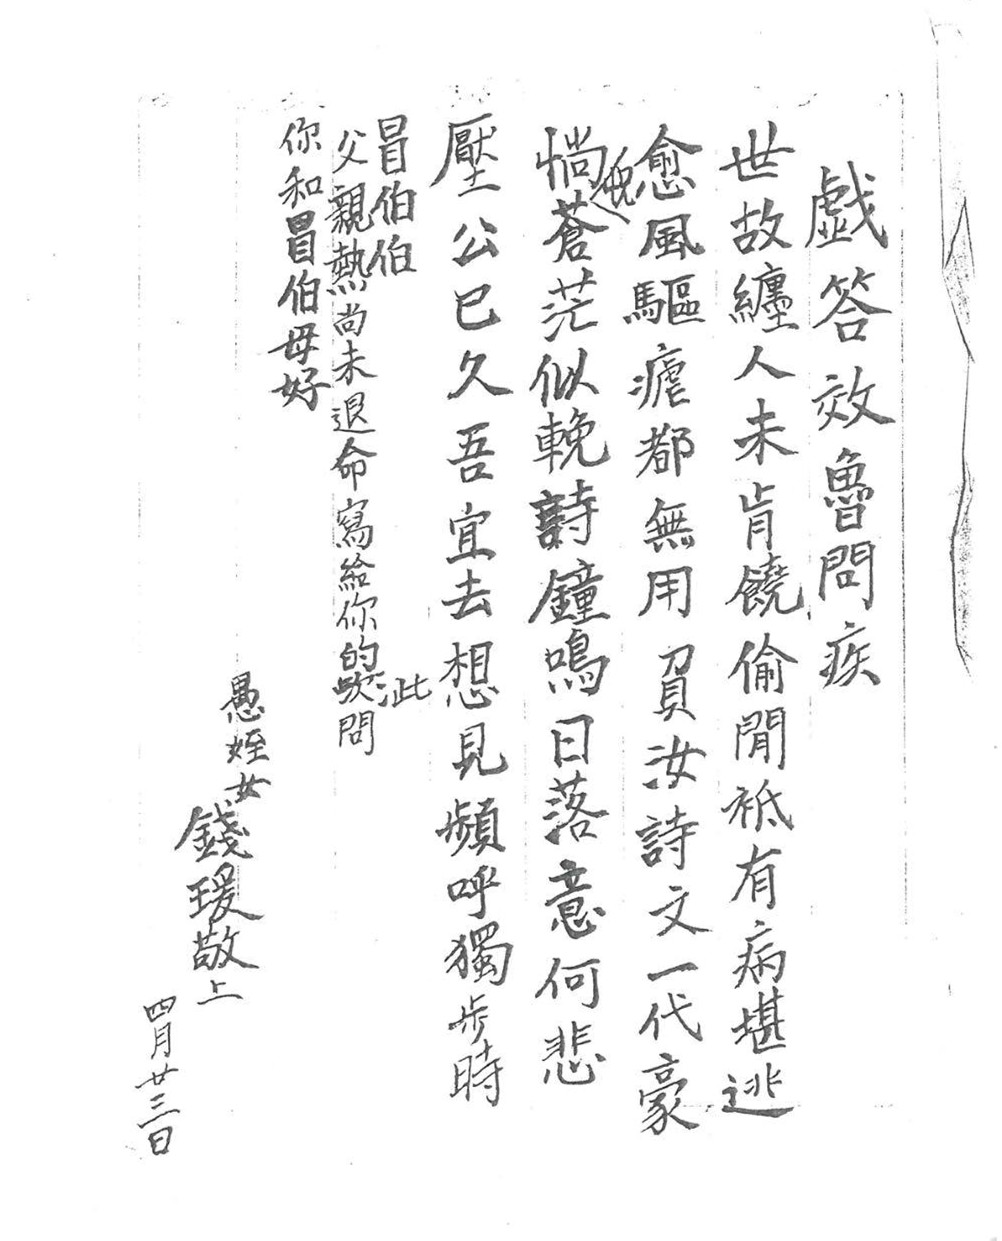 戲答效魯問疾
世故纏人未肯饒偷閒祗有病堪逃
愈風驅瘧都無用負汝詩文一代豪
惝悅蒼茫似輓詩鐘鳴日落意何悲
壓公已久吾宜去想見頻呼獨步時
冒伯伯 此
父親熱尚未退命寫給你的 問
你和冒伯母好
愚姪女
錢瑗敬上
四月廿三日